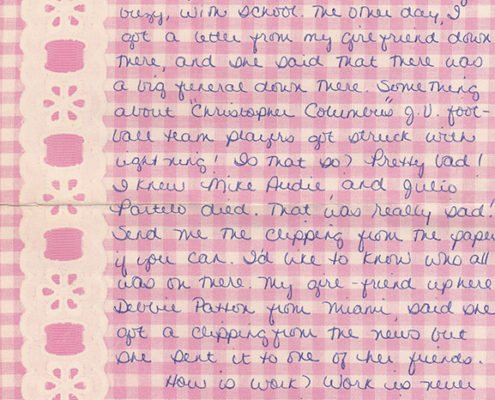 busy, with school. The other day, I
got a letter from my girlfriend down
there, and she said that there was
a big funeral down there. Something
about "Christopher Columbus" J.V. foot-
ball team players got struck with
lightning! Is that so? Pretty bad!
I knew Mike Audie, and Julio
Partelo died. That was really sad!
Send me the clipping from the paper
if you can. I'd like to know who all
was on there. My girl-friend up here
Debbie Patton from Miami, said she
got a clipping from the news but
she sent it to one of her friends.
How is work? Work is never